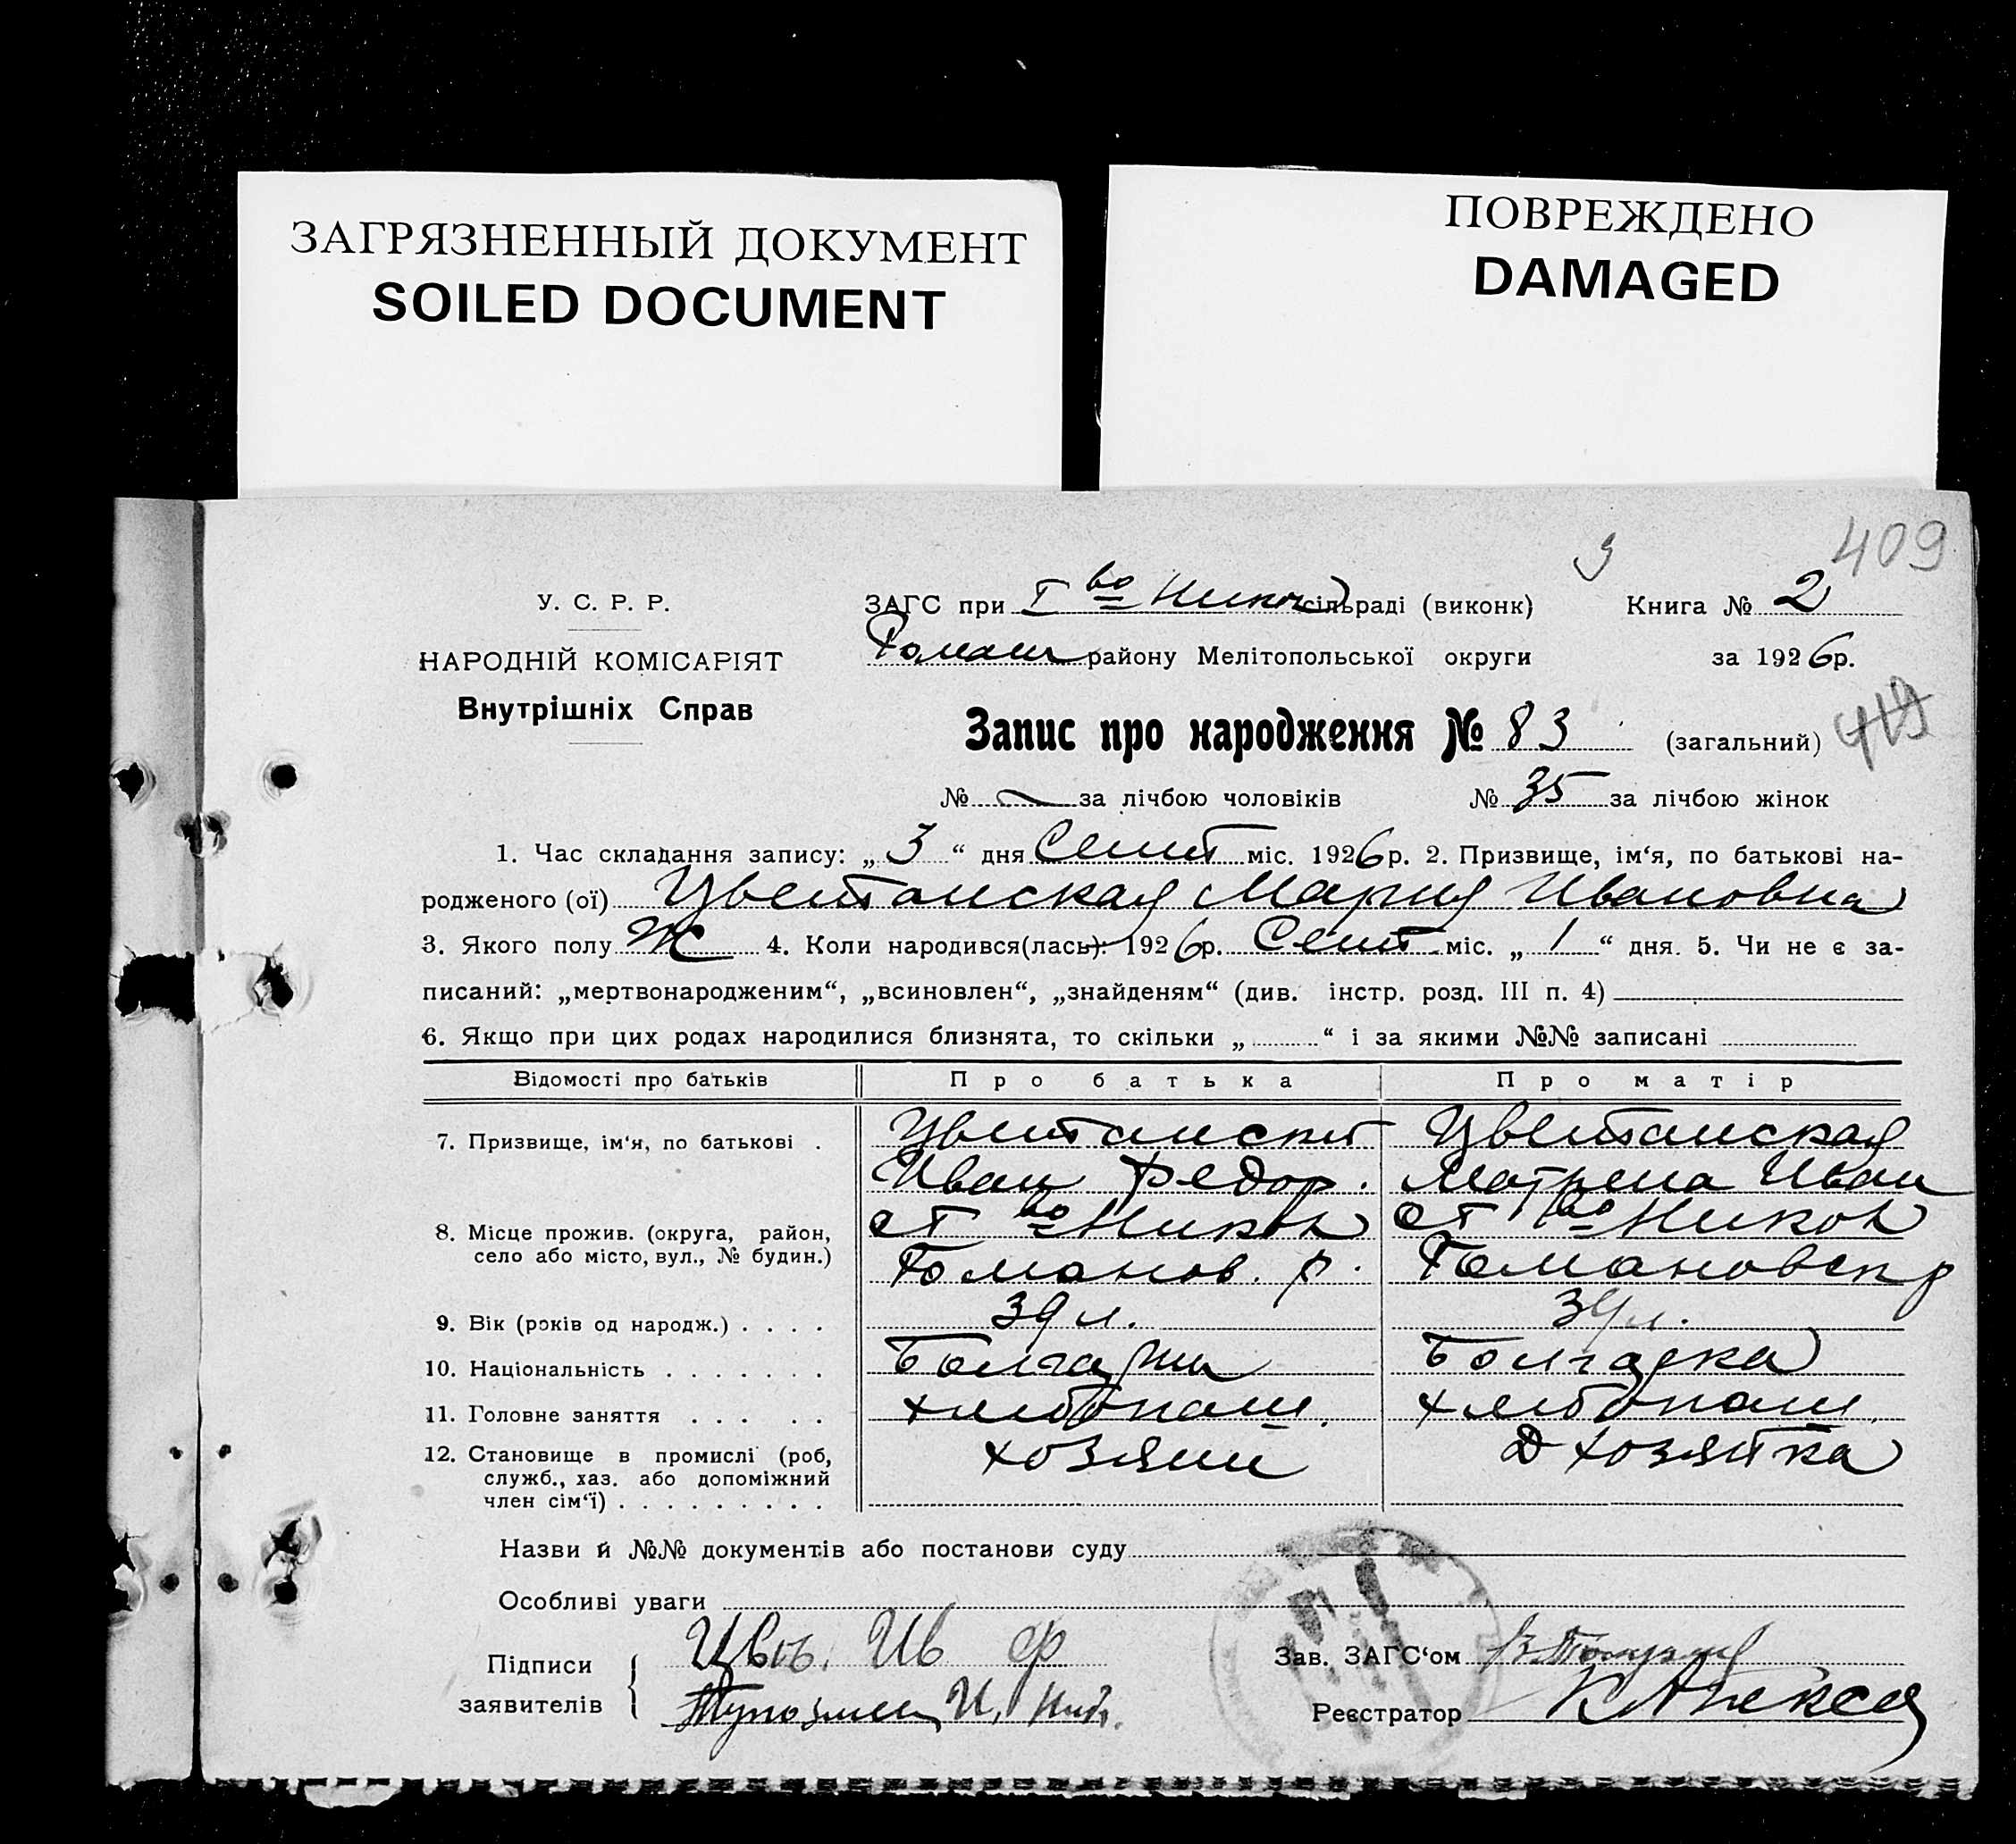 ЗАГРЯЗНЕННЫЙ ДОКУМЕНТ
SOILED DOCUMENT
ПОВРЕЖДЕНО
DAMAGED
409
У. С. Р. Р.
НАРОДНІЙ КОМІСАРІЯТ
Внутрішніх Справ
ЗАГС при I во Никол сільраді (виконк) Книга № 2
Роман району Мелітопольської округи за 1926 р.
Запис про народження № 83 (загальний) 419
№ за лічбою чоловіків № 35 за лічбою жінок
1. Час складання запису: „ 3 “ дня Сент міс. 1926 р. 2. Призвище, ім‘я, по батькові на-
родженого (ої) Цветанская Мария Ивановна
3. Якого полу Ж 4. Коли народився(лась): 1926 р. Сент міс. „ 1 “ дня. 5. Чи не є за-
писаний: „мертвонародженим“, „всиновлен“, „знайденям“ (див. інстр. розд. III п. 4)
6. Якщо при цих родах народилися близнята, то скільки „ “ і за якими №№ записані
Відомості про батьків Про батька Про матір
7. Призвище, ім‘я, по батькові . Цветанский Цветанская
Иван Федор. Матрена Иван
8. Місце прожив. (округа, район, с I во Никол с I во Никол
село або місто, вул., № будин.) Романов. р. Романовск р
9. Вік (років од народж.) . . . . 39 л. 39 л.
10. Національність . . . . . . . Болгарин Болгарка
11. Головне заняття . . . . . хлебопаш. хлебопаш.
12. Становище в промислі (роб, хозяин Д хозяйка
служб., хаз. або допоміжний
член сім‘ї) . . . . . . . . .
Назви й №№ документів або постанови суду
Особливі уваги
Підписи Цвет. Ив Ф Зав. ЗАГС‘ом
заявителів И. Реєстратор К Алексей